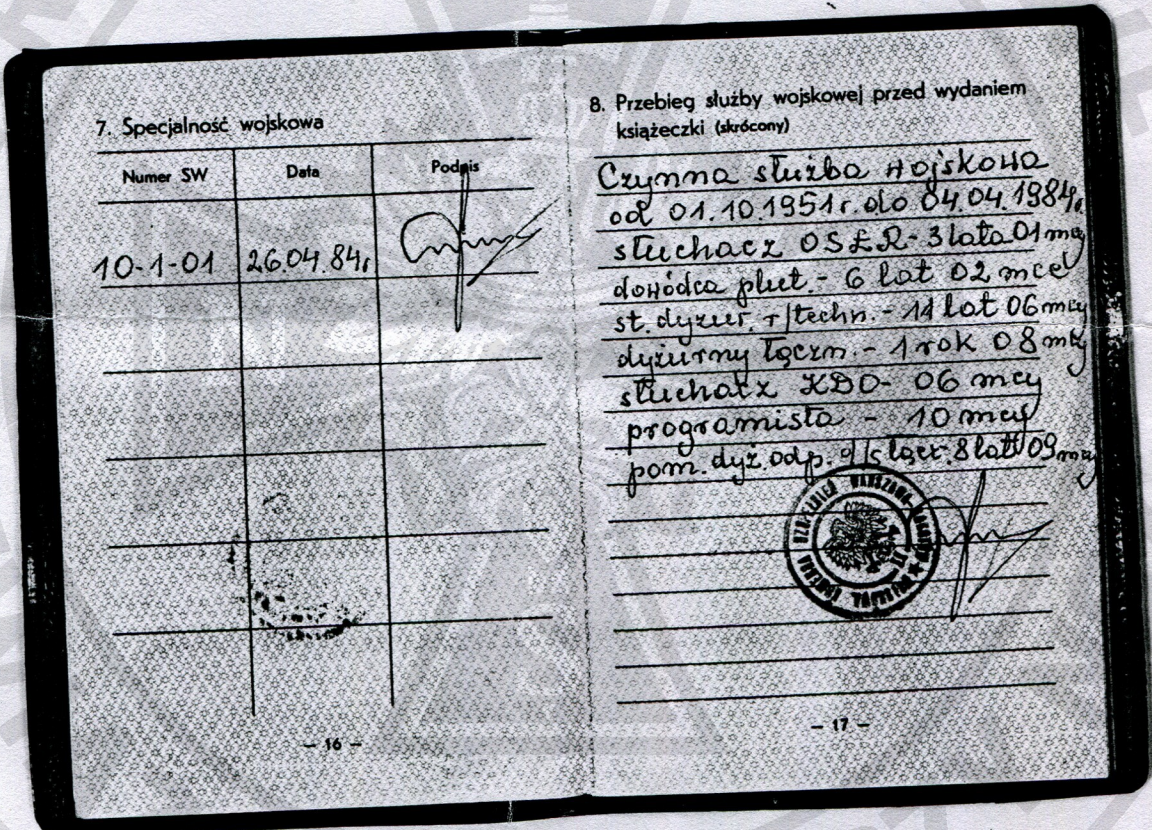 7. Specjalność wojskowa
Numer SW Data Podpis
10-1-01 26.04.84r
– 16 –
8. Przebieg służby wojskowej przed wydaniem
książeczki (skrócony)
Czynna służba wojskowa
od 01.10.1951r. do 04.04.1984r
słuchacz OSŁR - 3 lata 01 mcy
dowódca plut. - 6 lat 02 mce
st. dyżur. r/techn. - 11 lat 06 mcy
dyżurny łączn. - 1 rok 08 mcy
słuchacz KDO - 06 mcy
programista - 10 mcy
pom. dyż. odp. d/s łącz. 8 lat 09 mcy
WARSZAWA
– 17 –